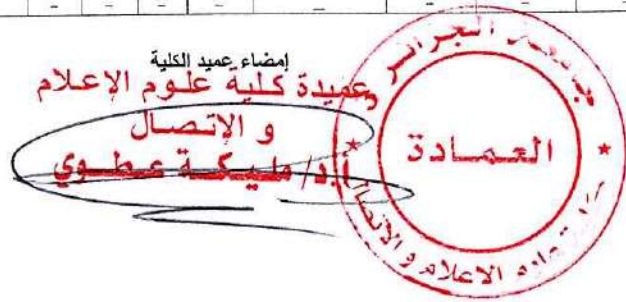 إمضاء عميد الكلية
عميدة كلية علوم الإعلام
و الإتصال
أ.د/ مليكة عطوي
جامعة الجزائر
العمادة
علوم الاعلام و الاتصال